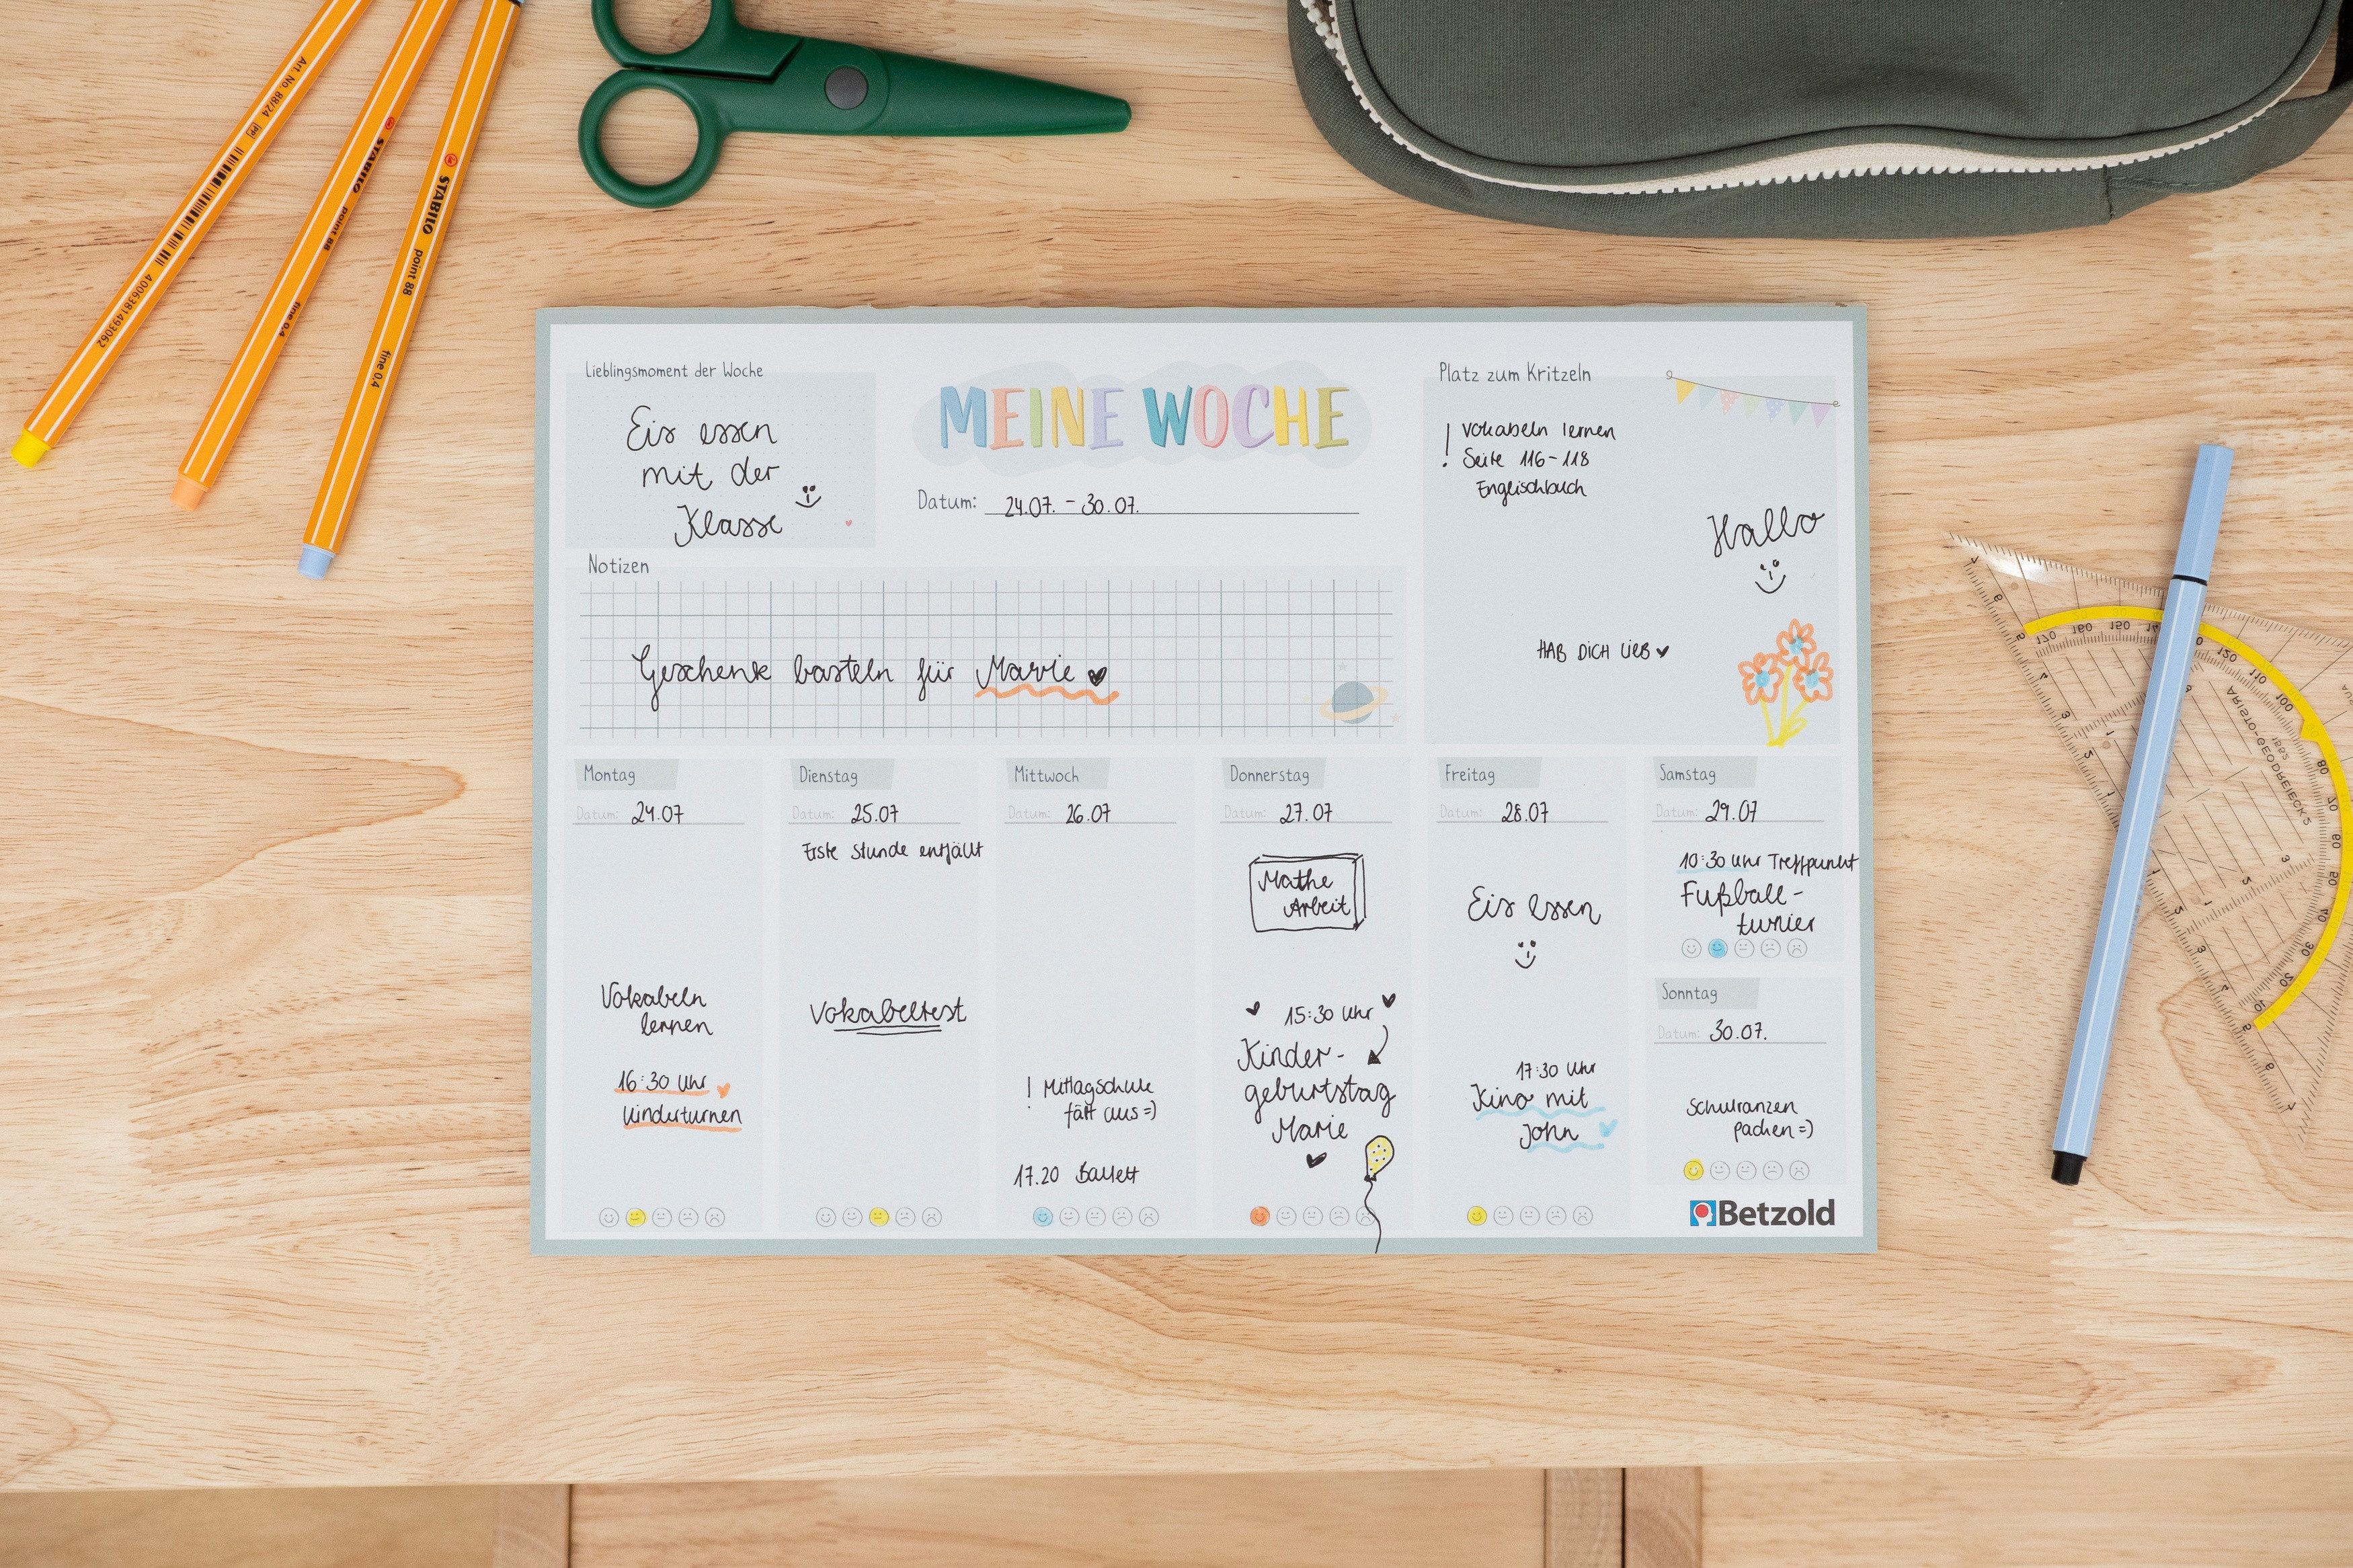 Art. No. 88/24
4006381493062
STABILO point 88 fine 0.4
STABILO point 88 fine 0.4
Lieblingsmoment der Woche
Eis essen
mit der
Klasse
MEINE WOCHE
Datum: 24.07. - 30.07.
Platz zum Kritzeln
! Vokabeln lernen
Seite 116-118
Englischbuch
Hallo
HAB DICH LIEB
Notizen
Geschenk basteln für Marie
Montag
Datum: 24.07
Vokabeln
lernen
16:30 Uhr
Kinderturnen
Dienstag
Datum: 25.07
Erste Stunde entfällt
Vokabeltest
Mittwoch
Datum: 26.07
! Mittagschule
fällt aus =)
17.20 Ballett
Donnerstag
Datum: 27.07
Mathe
Arbeit
15:30 Uhr
Kinder-
geburtstag
Marie
Freitag
Datum: 28.07
Eis essen
17:30 Uhr
Kino mit
John
Samstag
Datum: 29.07
10:30 Uhr Treffpunkt
Fußball-
turnier
Sonntag
Datum: 30.07.
Schulranzen
packen =)
Betzold
ARISTO-GEODREIECK